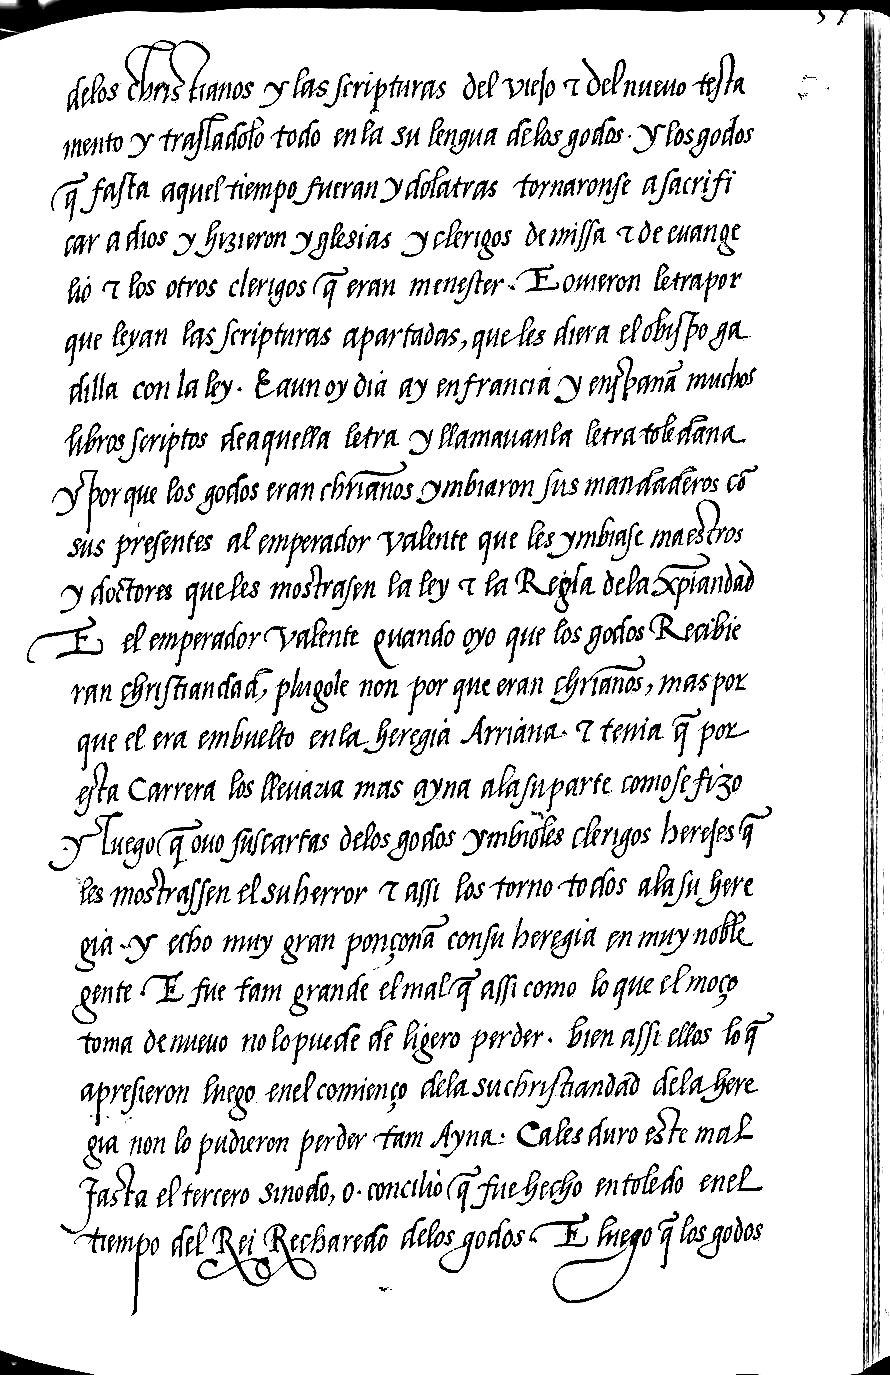 delos christianos y las scripturas del viejo τ del nueuo testa
mento y trasladolo todo en la su lengua de los godos. y los godos
q̃ fasta aquel tiempo fueran ydolatras tornaronse a sacrifi
car a dios y hizieron yglesias y clerigos de missa τ de euange
lio τ los otros clerigos q̃ eran menester. E ouieron letra por
que leyan las scripturas apartadas, que les diera el obispo ga
dilla con la ley. E aun oy dia ay en francia y en spana muchos
libros scriptos de aquella letra y llamauanla letra toledana
y por que los godos eran chrianos ymbiaron sus mandaderos cõ
sus presentes al emperador valente que les ymbiase maestros
y doctores que les mostrasen la ley τ la Regla de la xp̃iandad
E el emperador valente quando oyo que los godos Recibie
ran christiandad, plugole non por que eran chrianos, mas por
que el era embuelto en la heregia Arriana. τ tenia q̃ por
esta Carrera los lleuaria mas ayna a la su parte como se fizo
y luego q̃ ouo sus cartas delos godos ymbioles clerigos herejes q̃
les mostrassen el su herror τ assi los torno todos a la su here
gia. y echo muy gran ponçona con su heregia en muy noble
gente. E fue tam grande el mal q̃ assi como lo que el moço
toma de nueuo no lo puede de ligero perder. bien assi ellos lo q̃
apresieron luego en el comienço dela su christiandad dela here
gia non lo pudieron perder tam Ayna: Ca les duro este mal
fasta el tercero sinodo, o. concilio q̃ fue hecho en toledo en el
tiempo del Rei Recharedo delos godos. E luego q̃ los godos